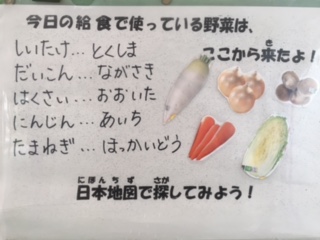 今日の給食で使っている野菜は、
ここから来たよ！
しいたけ…とくしま
だいこん…ながさき
はくさい…おおいた
にんじん…あいち
たまねぎ…ほっかいどう
日本地図で探してみよう！